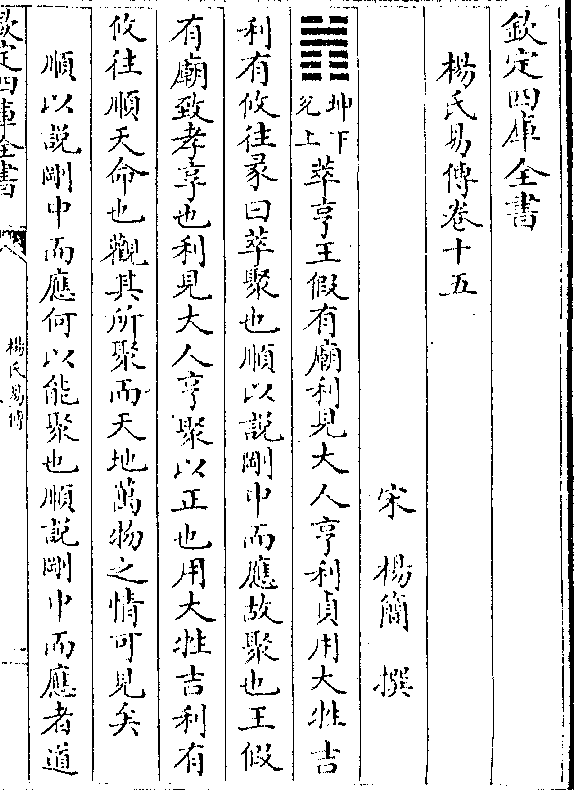 欽定四庫全書
楊氏易傳卷十五
宋 楊簡 撰
䷬坤下兌上萃亨王假有廟利見大人亨利貞用大牲吉
利有攸往彖曰萃聚也順以說剛中而應故聚也王假
有廟致孝享也利見大人亨聚以正也用大牲吉利有
攸往順天命也觀其所聚而天地萬物之情可見矣
順以說剛中而應何以能聚也順說剛中而應者道
欽定四庫全書
楊氏易傳
一